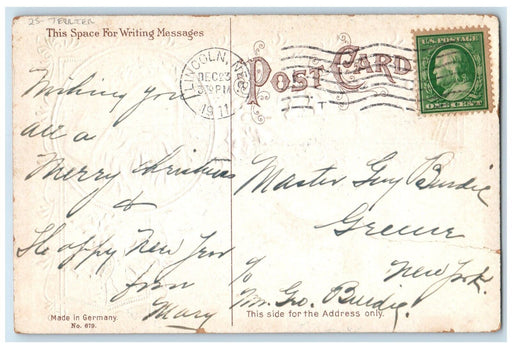 This Space For Writing Messages
LINCOLN, NEB.
DEC 23
9 PM
1911
POST CARD
U.S. POSTAGE
ONE CENT
Wishing you
all a
Merry Christmas
&
Happy New Year
from
Mary
Master Guy Burdic
Greene
New York.
c/o
Mr. Geo. Burdic.
Made in Germany.
No. 679.
This side for the Address only.